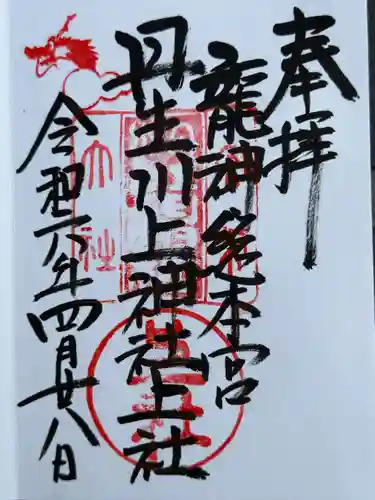 奉拝
龍神総本宮
丹生川上神社上社
令和六年四月廿八日
大
社